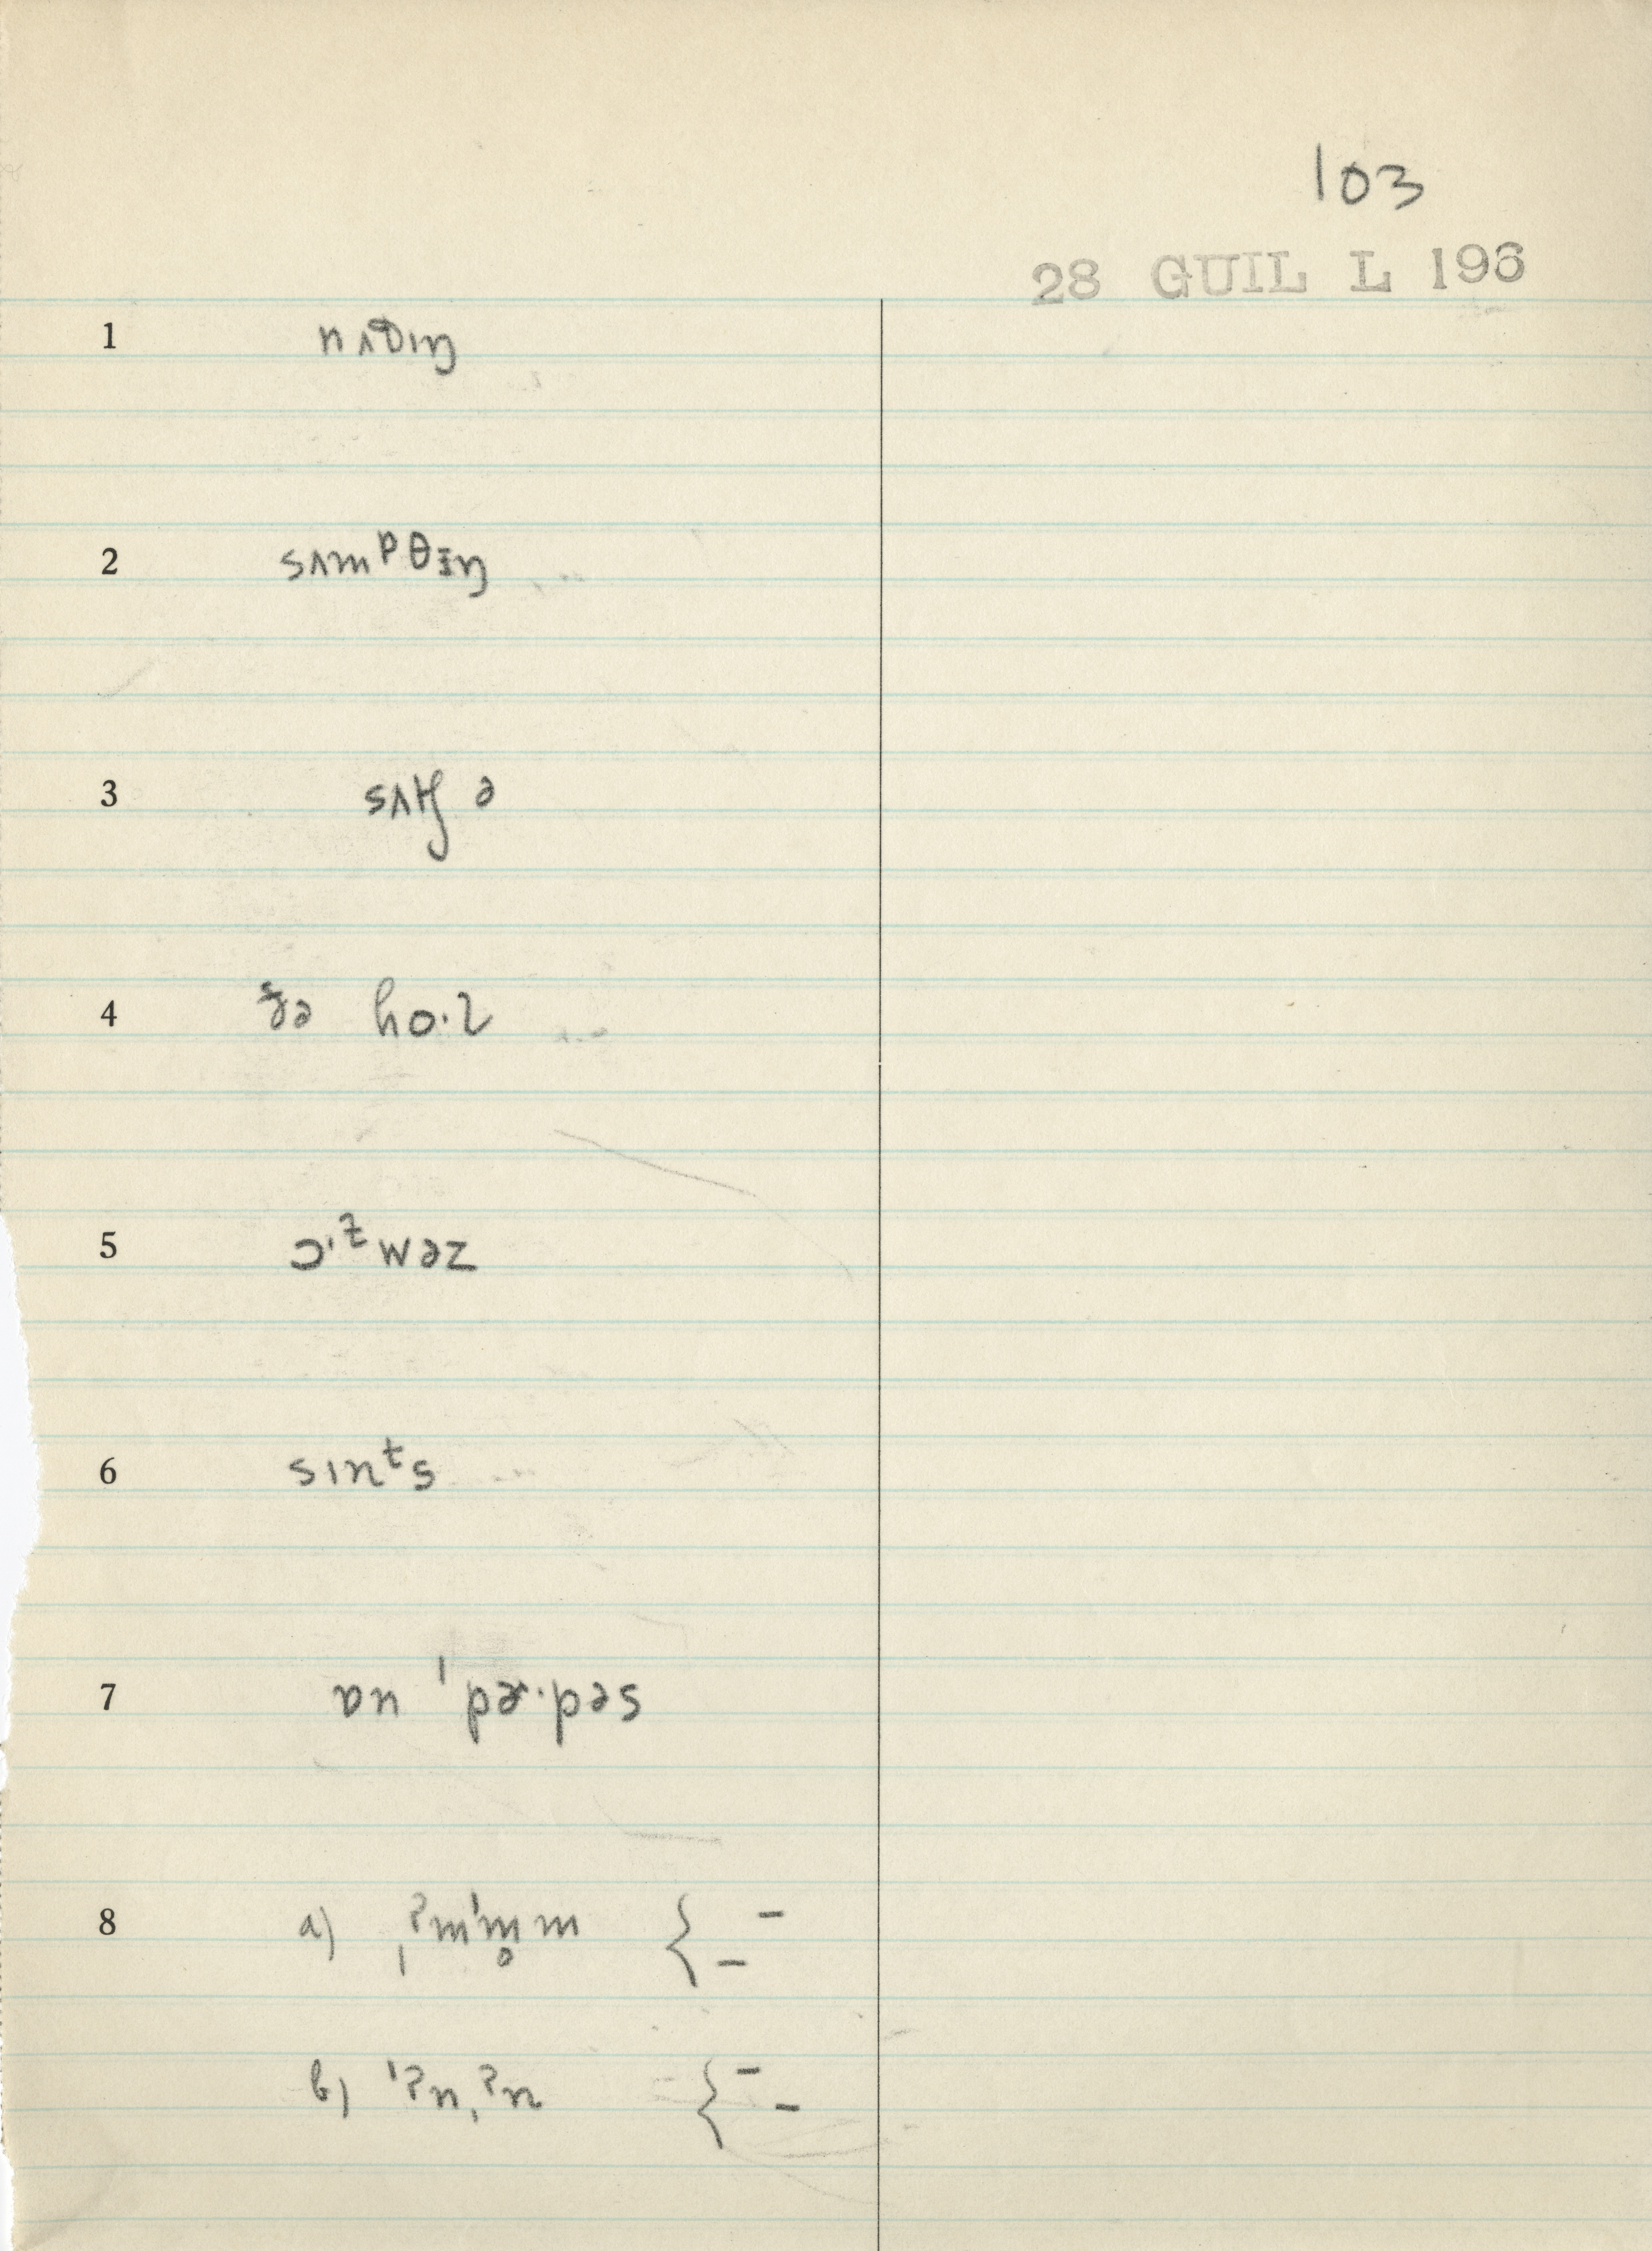 103
28 GUIL L 196
1 nʌθɪŋ
2 sʌmᵖθɪŋ
3 sʌtʃ ə
4 ðə ho·l
5 ɔ·ᶻwəz
6 sɪnᵗs
7 ɒn ˈpɚ·pəs
8 a) ˌʔmˈm̥m { – –
b) ˈʔn,ʔn { – –